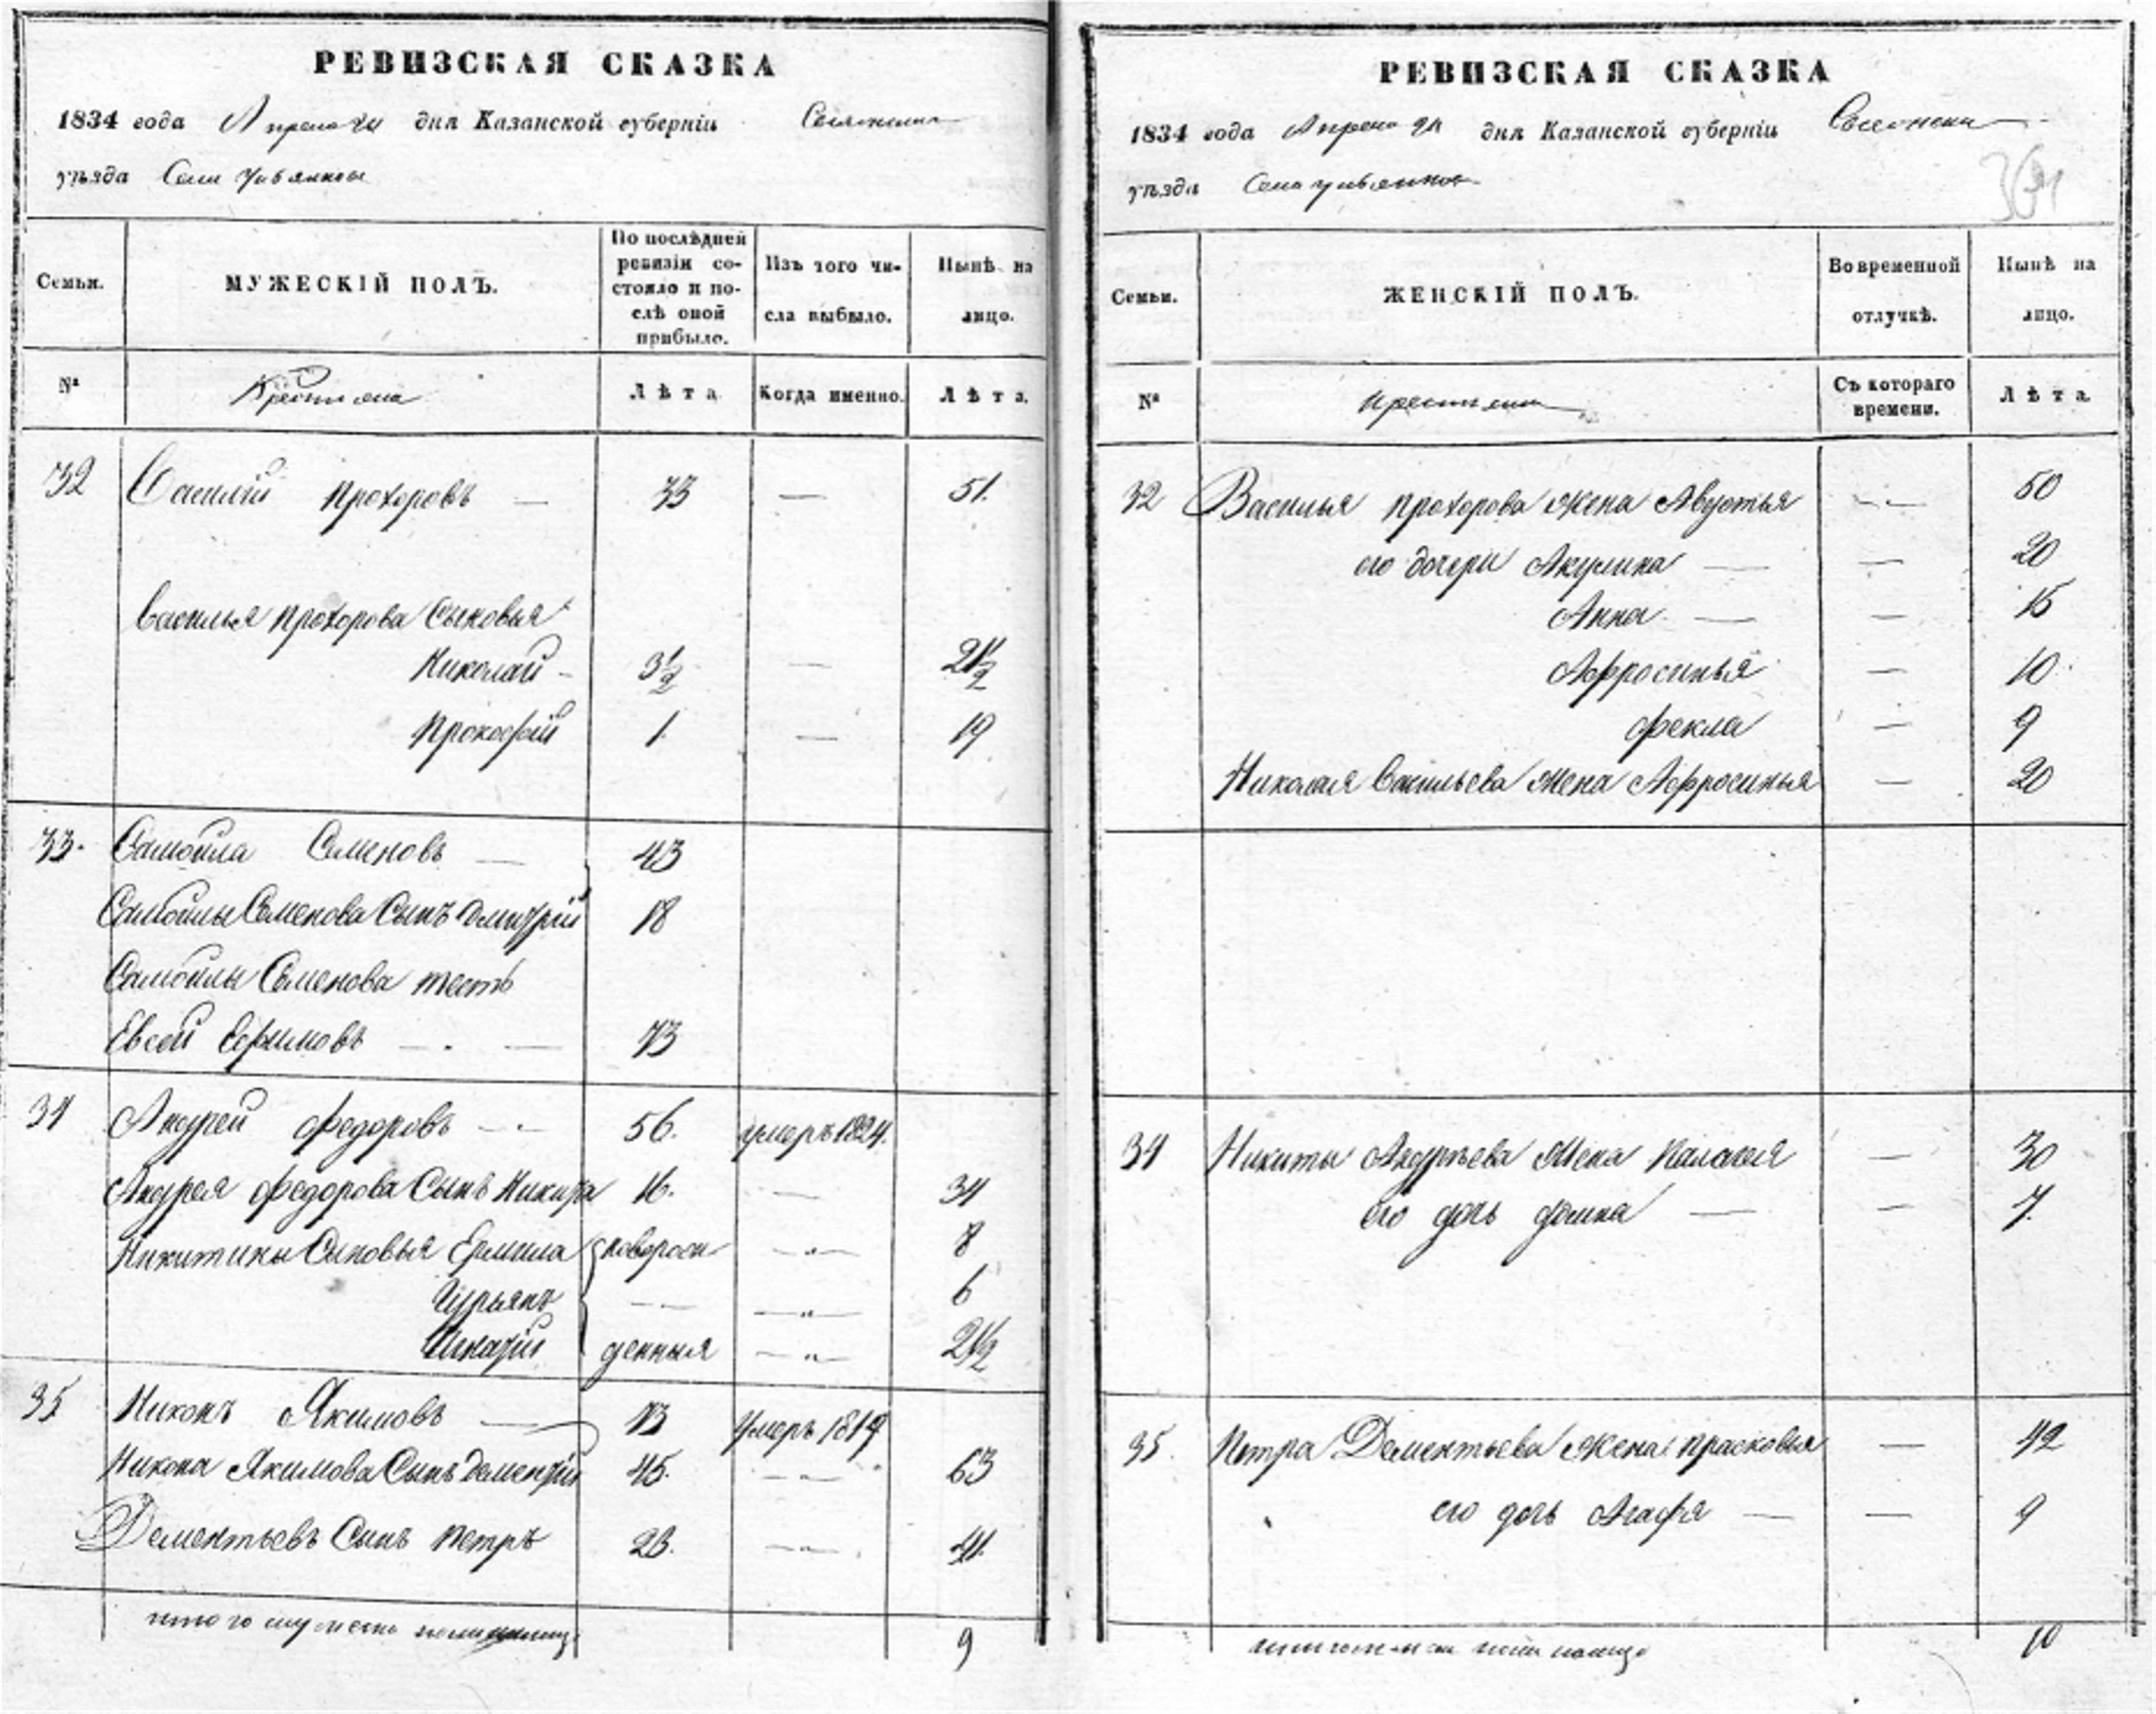 РЕВИЗСКАЯ СКАЗКА
1834 года Апреля 24 дня Казанской губерніи
уѣзда Села
Семьи.
МУЖЕСКІЙ ПОЛЪ.
По послѣдней ревизіи состояло и послѣ оной прибыло.
Изъ того числа выбыло.
Нынѣ на лицо.
№
Крестьяна
Лѣта
Когда именно.
Лѣта.
32 Василій Прохоровъ — 33 — 51.
Василья Прохорова Сыновья
Николай - 3½ — 21½
Прокофій 1. — 19
33. Самойла Семеновъ — 43
Самойлы Семенова Сынъ Дмитрій 18
Самойлы Семенова тесть
Евсей Ефимовъ — 73
34 Андрей Федоровъ 56. умеръ 1824.
Андрея Федорова Сынъ Никита 16. — 34
Никитины Сыновья Ермила новорож — 8
Гурьянъ — 6
Игнатій денныя — 2½
35 Никонъ Якимовъ — 73 умеръ 1819
Никона Якимова Сынъ Дементій 45. — 63
Дементьевъ Сынъ Петръ 23. — 41.
итого мужеска пола
9
РЕВИЗСКАЯ СКАЗКА
1834 года Апреля 24 дня Казанской губерніи
уѣзда Села
Семьи.
ЖЕНСКІЙ ПОЛЪ.
Во временной отлучкѣ.
Нынѣ на лицо.
№
крестьяна
Съ котораго времени.
Лѣта
32 Василья Прохорова жена Авдотья — 50
его дочери Акулина — 20
Анна — 15
Афросинья — 10.
Фекла — 9
Николая Васильева жена Афросинья — 20
34 Никиты Андреева жена Палагея — 30
его дочь Фомна — 7.
35. Петра Дементьева жена Прасковья — 42
его дочь Агафья — 9
итого женска пола налицо
10